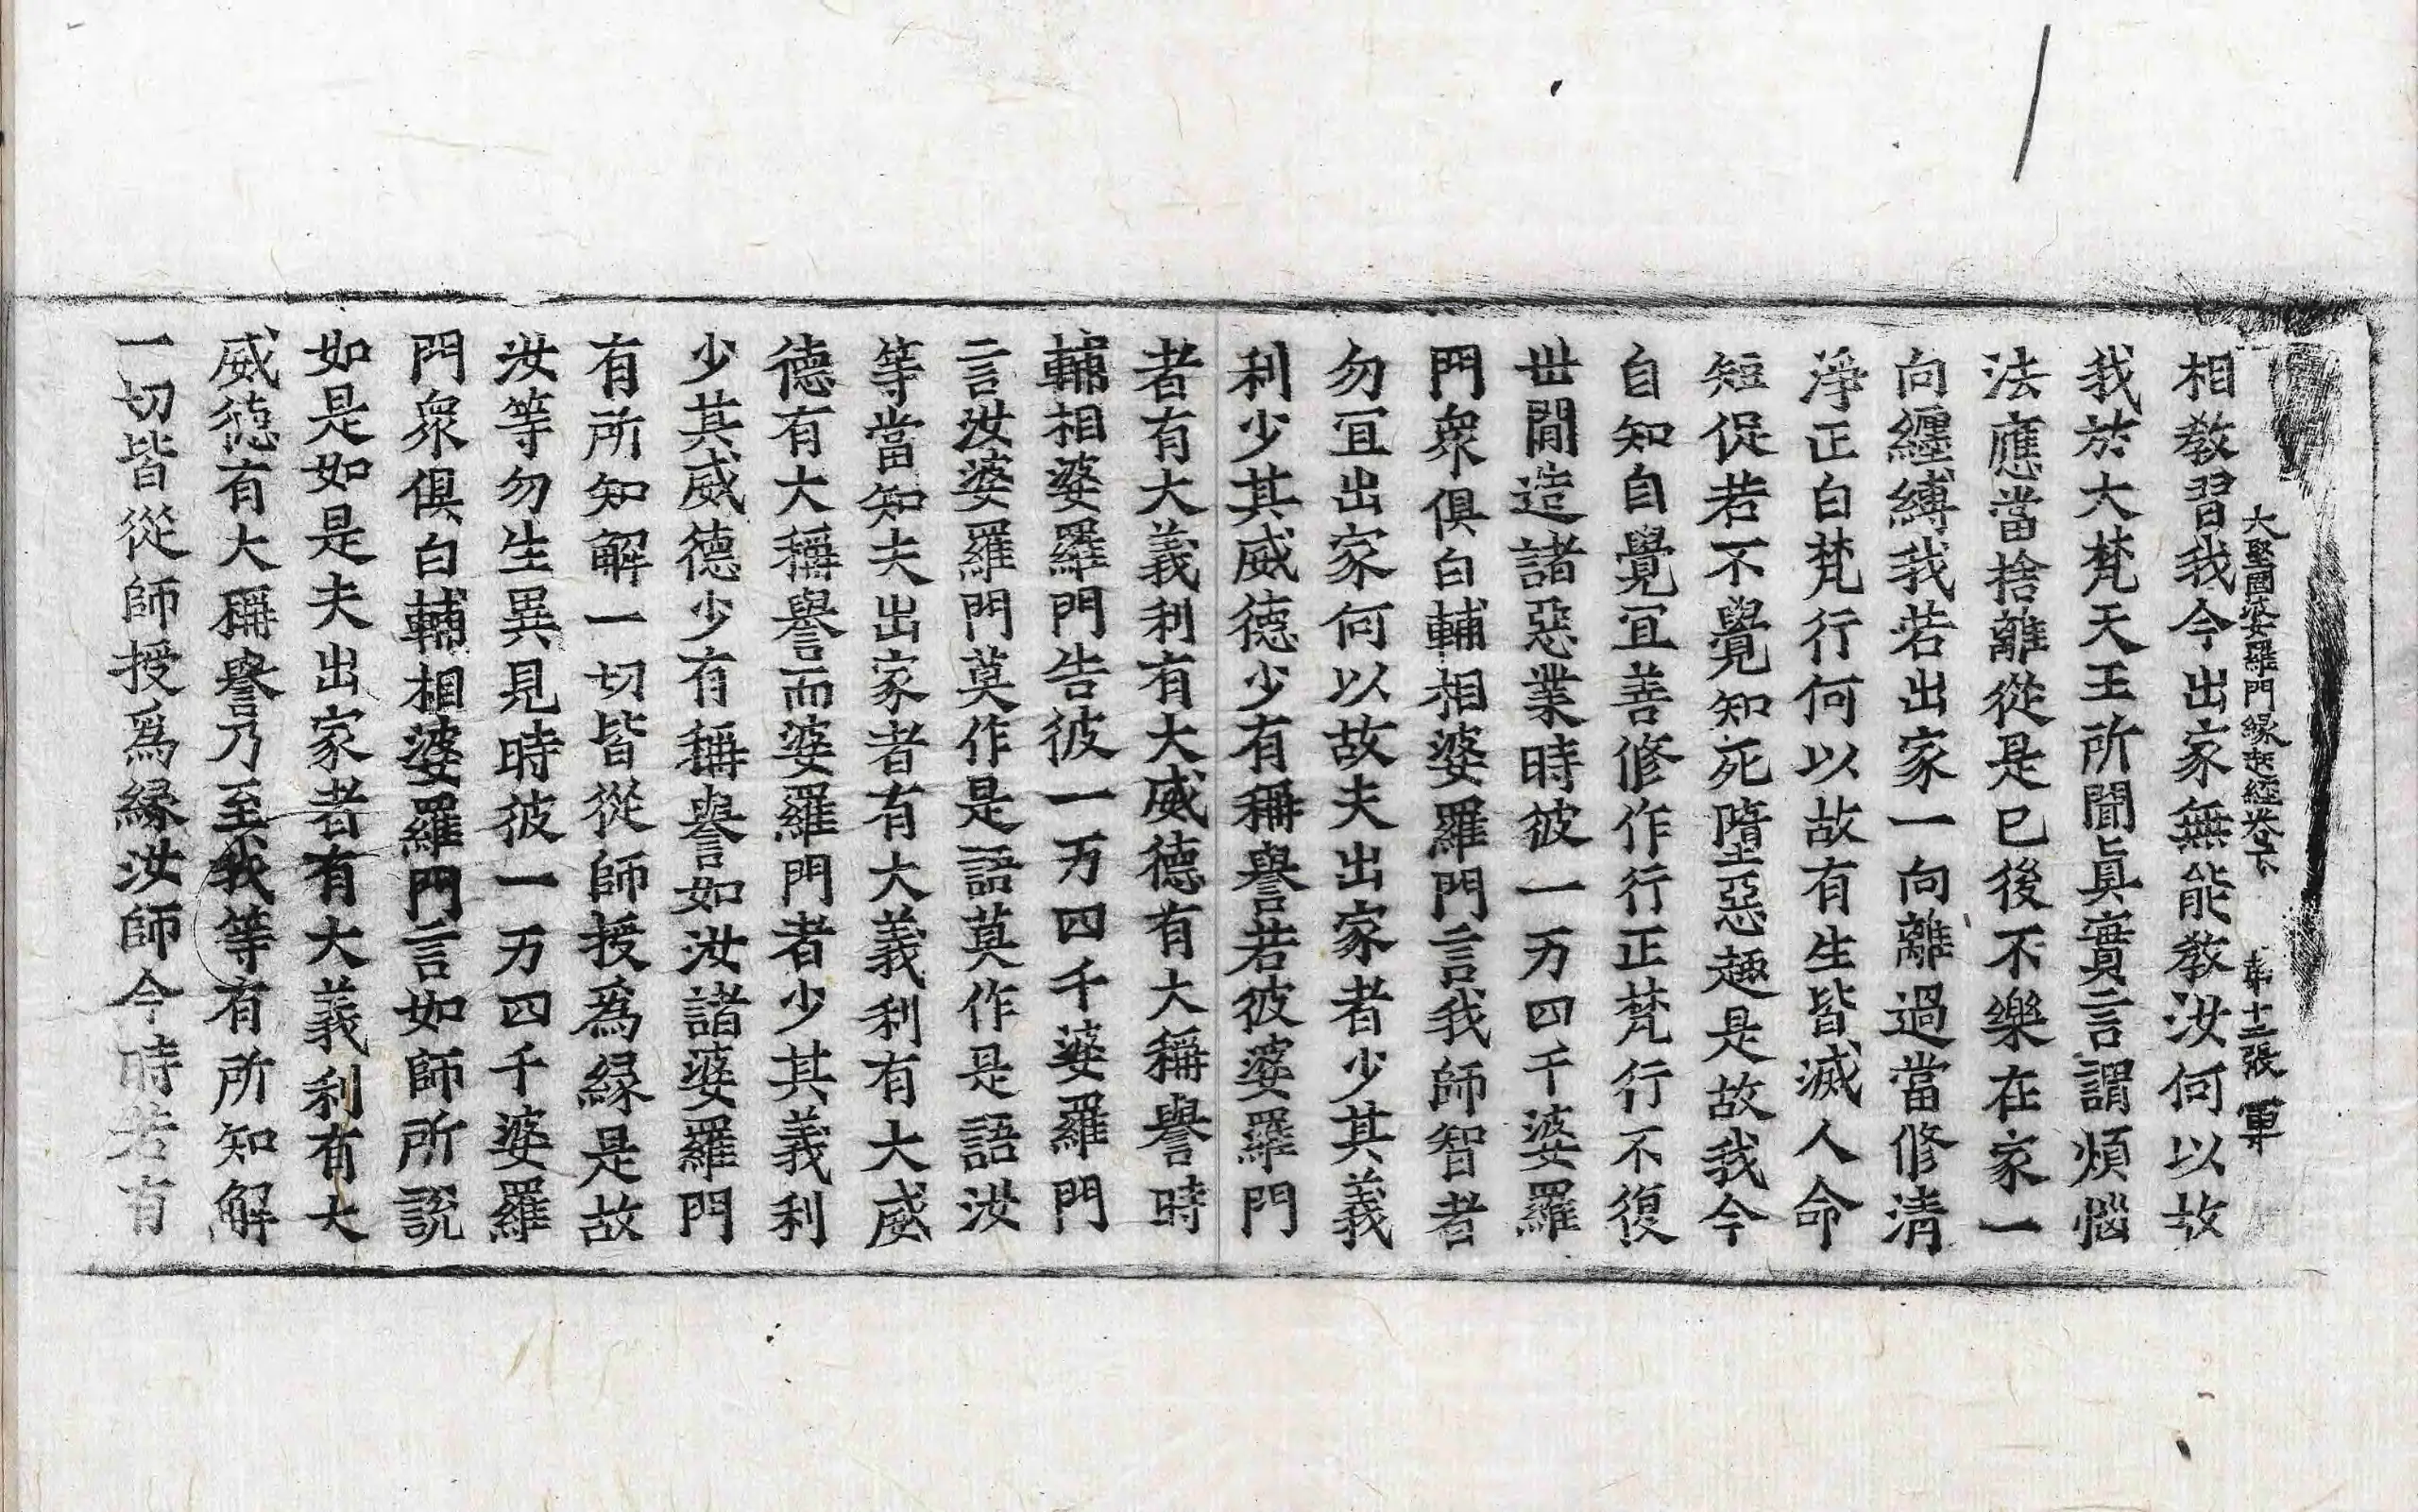 大堅固婆羅門緣起經卷下 第十二張 軍
相教習我今出家無能教汝何以故
我於大梵天王所聞眞實言謂煩惱
法應當捨離從是已後不樂在家一
向纏縛我若出家一向離過當修清
淨正白梵行何以故有生皆滅人命
短促若不覺知死墮惡趣是故我今
自知自覺冝善修作行正梵行不復
世間造諸惡業時彼一万四千婆羅
門衆俱白輔相婆羅門言我師智者
勿冝出家何以故夫出家者少其義
利少其威德少有稱譽若彼婆羅門
者有大義利有大威德有大稱譽時
輔相婆羅門告彼一万四千婆羅門
言汝婆羅門莫作是語莫作是語汝
等當知夫出家者有大義利有大威
德有大稱譽而婆羅門者少其義利
少其威德少有稱譽如汝諸婆羅門
有所知解一切皆從師授爲緣是故
汝等勿生異見時彼一万四千婆羅
門衆俱白輔相婆羅門言如師所說
如是如是夫出家者有大義利有大
威德有大稱譽乃至我等有所知解
一切皆從師授爲緣汝師今時若有